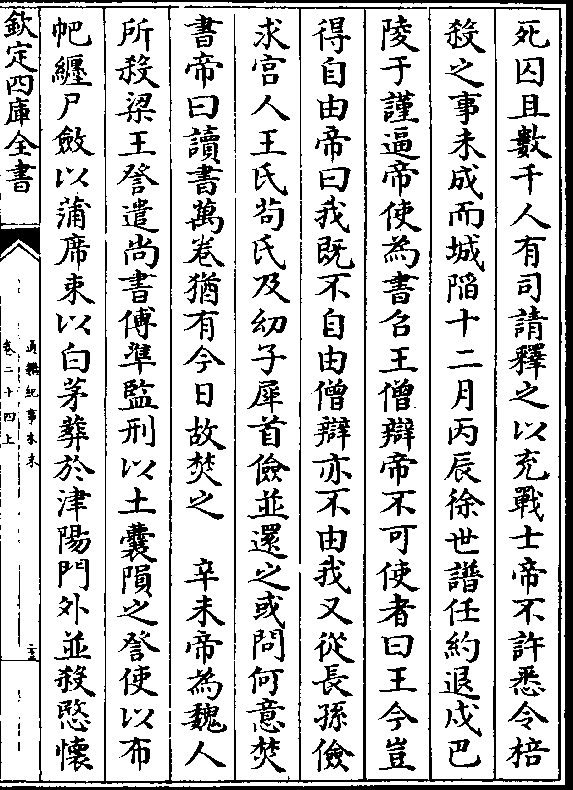 死囚且數千人有司請釋之以充戰士帝不許悉令棓
殺之事未成而城陷十二月丙辰徐世譜任約退戍巴
陵于謹逼帝使為書召王僧辯帝不可使者曰王今豈
得自由帝曰我既不自由僧辯亦不由我又從長孫儉
求宫人王氏苟氏及幼子犀首儉並還之或問何意焚
書帝曰讀書萬卷猶有今日故焚之　辛未帝為魏人
所殺梁王詧遣尚書傅準監刑以土囊隕之詧使以布
帊纒尸斂以蒲席束以白茅葬於津陽門外並殺愍懷
欽定四庫全書
通鑑紀事本末
卷二十四上